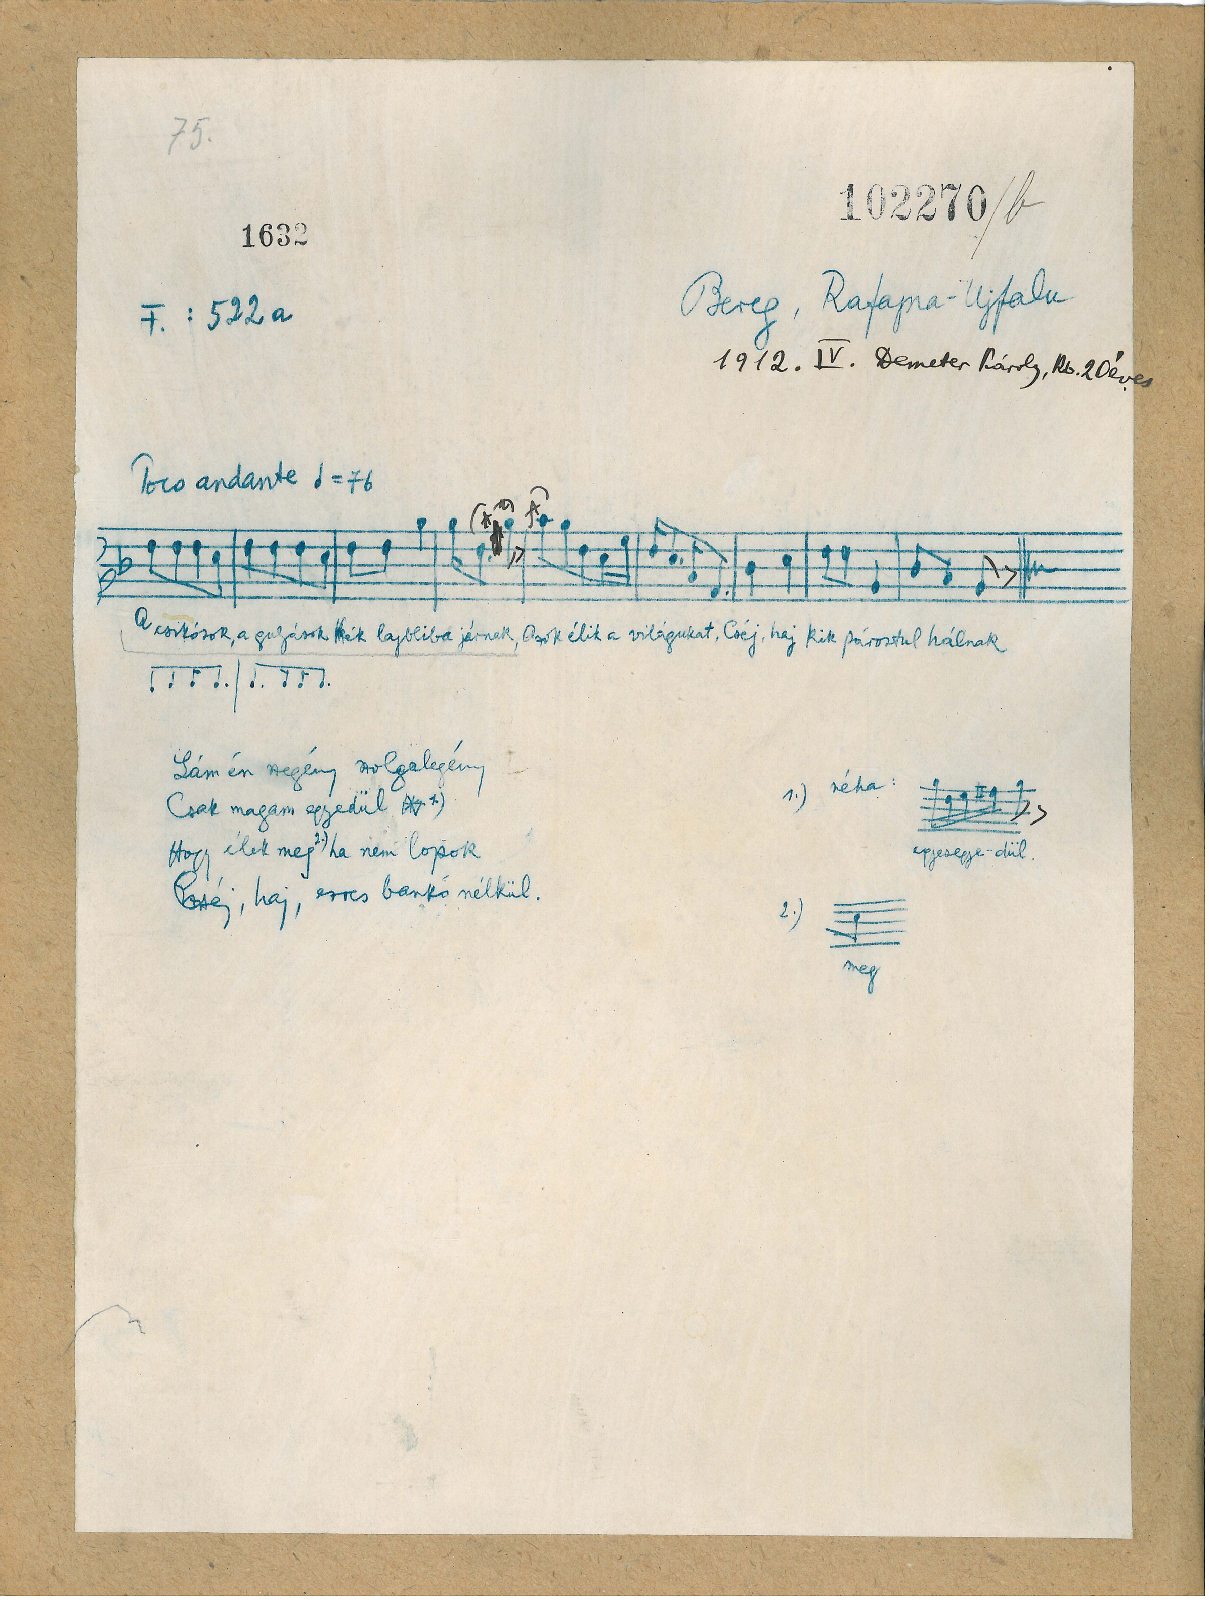 75.
102270/b
1632
F. : 522a
Bereg, Rafajna-Ujfalu
1912. IV. Demeter Károly, kb. 20 éves
Poco andante = 76
A csikósok, a gulyások kék lajbliba járnak, Azok élik a világukat, Cséj, haj kik párostul hálnak
Lám én szegény szolgalegény
Csak magam egyedül 1.)
Hogy élek meg 2.) ha nem lopok
Cséj, haj, ezres bankó nélkül.
1.) néha:
egyesegye-dül.
2.)
meg